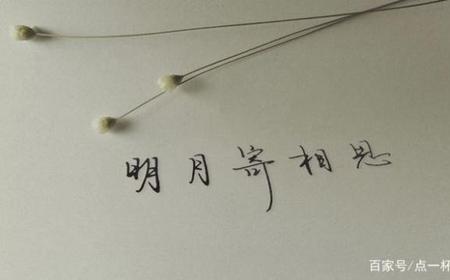 明月寄相思
百家号/点一杯